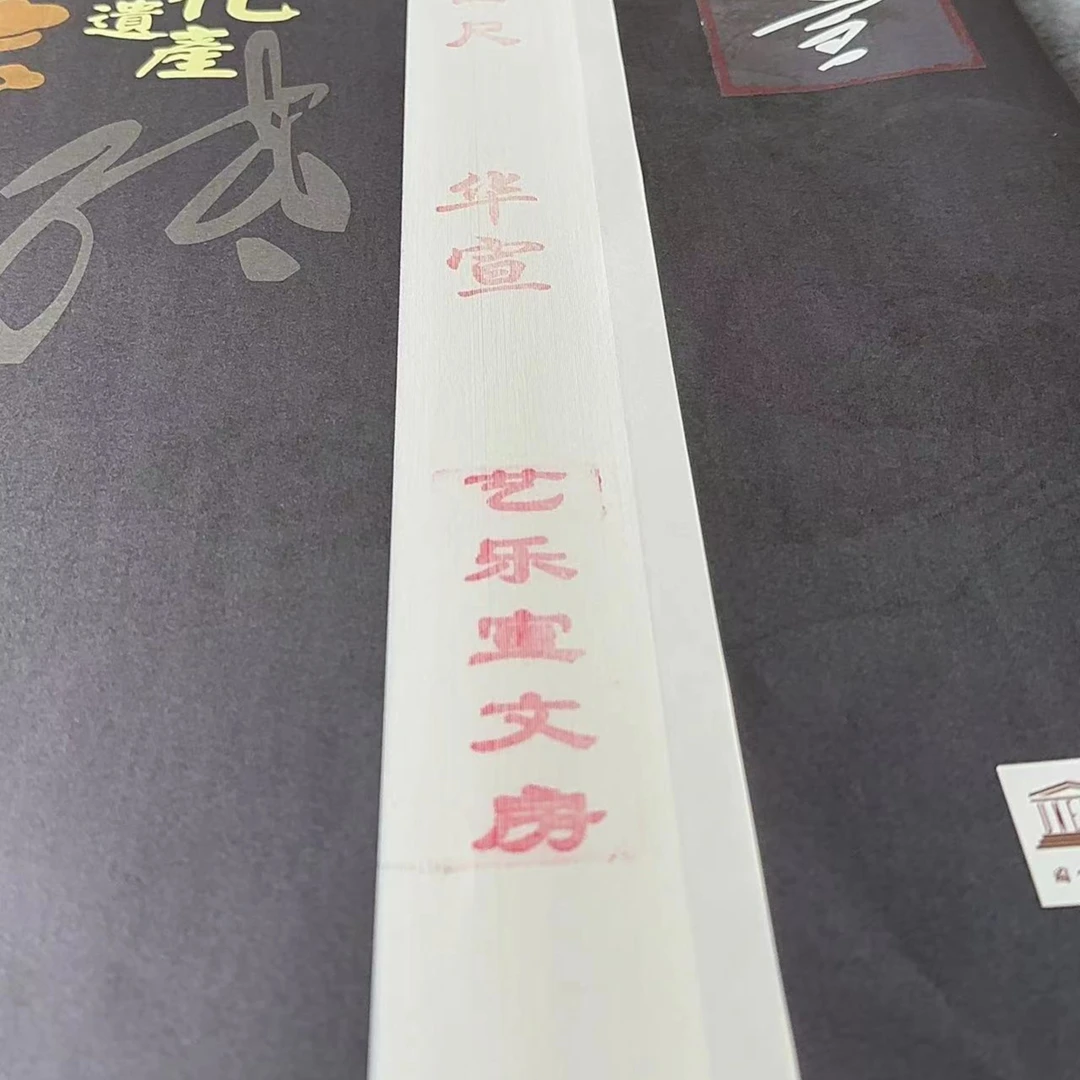 遺產
尺
华宣
艺乐宣文房